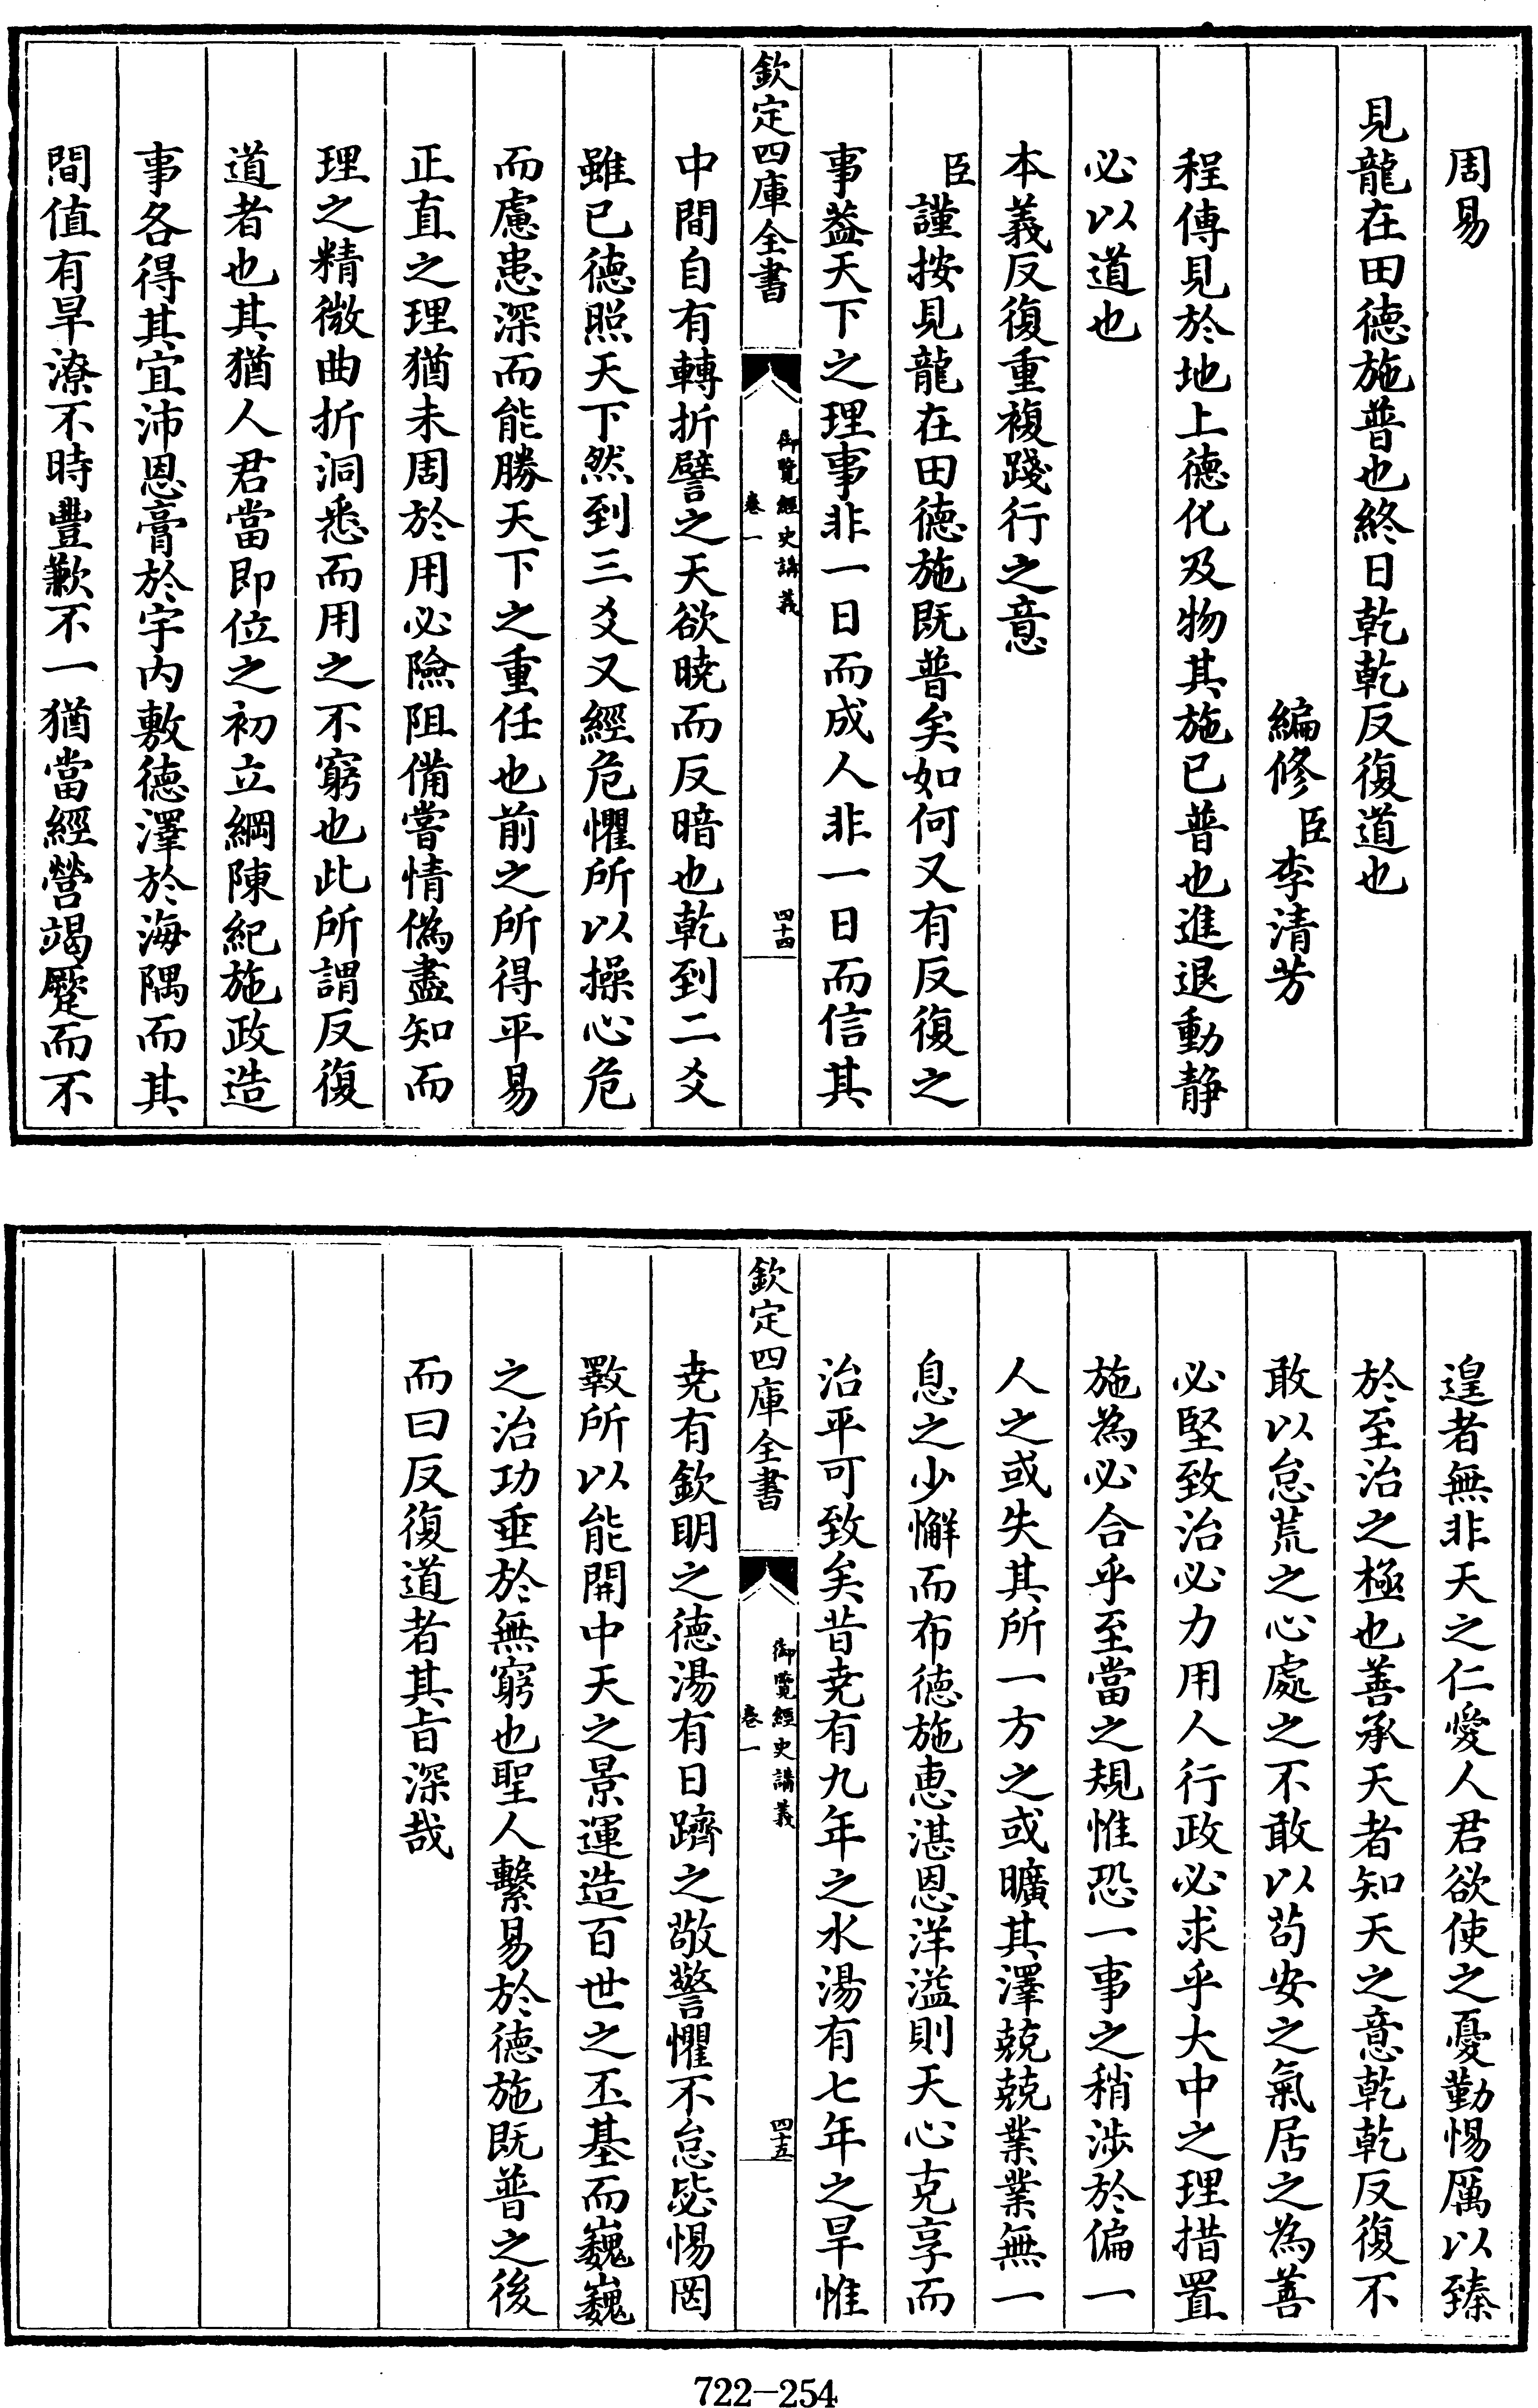 周易
見龍在田德施普也終日乾乾反復道也
編修臣李清芳
程傳見於地上德化及物其施已普也進退動静
必以道也
本義反復重複踐行之意
臣謹按見龍在田德施既普矣如何又有反復之
事葢天下之理事非一日而成人非一日而信其
欽定四庫全書
御覽經史講義
卷一
四十四
中間自有轉折譬之天欲暁而反暗也乾到二爻
雖已德照天下然到三爻又經危懼所以操心危
而慮患深而能勝天下之重任也前之所得平易
正直之理猶未周於用必險阻備嘗情偽盡知而
理之精微曲折洞悉而用之不窮也此所謂反復
道者也其猶人君當即位之初立綱陳紀施政造
事各得其宜沛恩膏於宇内敷德澤於海隅而其
間值有旱潦不時豐歉不一猶當經營竭蹷而不
遑者無非天之仁愛人君欲使之憂勤惕厲以臻
於至治之極也善承天者知天之意乾乾反復不
敢以怠荒之心處之不敢以苟安之氣居之為善
必堅致治必力用人行政必求乎大中之理措置
施為必合乎至當之規惟恐一事之稍涉於偏一
人之或失其所一方之或曠其澤兢兢業業無一
息之少懈而布德施恵湛恩洋溢則天心克享而
治平可致矣昔尭有九年之水湯有七年之旱惟
欽定四庫全書
御覽經史講義
卷一
四十五
尭有欽明之德湯有日躋之敬警懼不怠毖惕罔
斁所以能開中天之景運造百世之丕基而巍巍
之治功垂於無窮也聖人繫易於德施既普之後
而曰反復道者其㫖深哉
722-254